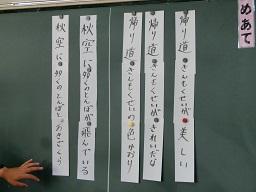 めあて
帰り道きんもくせいが美しい
帰り道きんもくせいがきれいだな
帰り道きんもくせいの色かおり
秋空に多くのとんぼが飛んでいる
秋空に多くのとんぼと